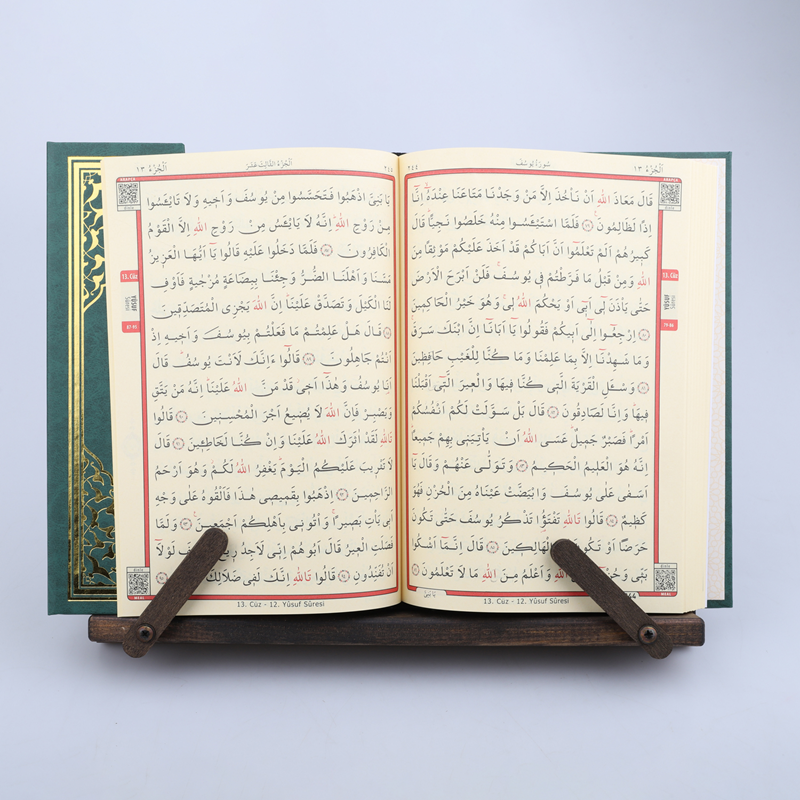 اَلْجُزْءُ ١٣
سُورَةُ يُوسُفَ
٢٤٤
قَالَ مَعَاذَ اللّٰهِ اَنْ نَأْخُذَ اِلَّا مَنْ وَجَدْنَا مَتَاعَنَا عِنْدَهُٓ اِنَّٓا
اِذًا لَظَالِمُونَ ۟ فَلَمَّا اسْتَيْـَٔسُوا مِنْهُ خَلَصُوا نَجِيًّا قَالَ
كَبِيرُهُمْ اَلَمْ تَعْلَمُٓوا اَنَّ اَبَاكُمْ قَدْ اَخَذَ عَلَيْكُمْ مَوْثِقًا مِنَ
اللّٰهِ وَمِنْ قَبْلُ مَا فَرَّطْتُمْ فِي يُوسُفَ فَلَنْ اَبْرَحَ الْاَرْضَ
حَتّٰى يَأْذَنَ لِٓي اَبِٓي اَوْ يَحْكُمَ اللّٰهُ لِي وَهُوَ خَيْرُ الْحَاكِمِينَ
اِرْجِعُٓوا اِلٰٓى اَبِيكُمْ فَقُولُوا يَٓا اَبَانَٓا اِنَّ ابْنَكَ سَرَقَ
وَمَا شَهِدْنَٓا اِلَّا بِمَا عَلِمْنَا وَمَا كُنَّا لِلْغَيْبِ حَافِظِينَ
وَسْـَٔلِ الْقَرْيَةَ الَّتِي كُنَّا فِيهَا وَالْعِيرَ الَّتِٓي اَقْبَلْنَا
فِيهَا وَاِنَّا لَصَادِقُونَ قَالَ بَلْ سَوَّلَتْ لَكُمْ اَنْفُسُكُمْ
اَمْرًا فَصَبْرٌ جَمِيلٌ عَسَى اللّٰهُ اَنْ يَأْتِيَنِي بِهِمْ جَمِيعًا
اِنَّهُ هُوَ الْعَلِيمُ الْحَكِيمُ وَتَوَلّٰى عَنْهُمْ وَقَالَ يَٓا
اَسَفٰى عَلٰى يُوسُفَ وَابْيَضَّتْ عَيْنَاهُ مِنَ الْحُزْنِ فَهُوَ
كَظِيمٌ قَالُوا تَاللّٰهِ تَفْتَؤُا تَذْكُرُ يُوسُفَ حَتّٰى تَكُونَ
حَرَضًا اَوْ تَكُونَ الْهَالِكِينَ قَالَ اِنَّمَٓا اَشْكُوا
بَثِّي وَحُزْنِٓي اللّٰهِ وَاَعْلَمُ مِنَ اللّٰهِ مَا لَا تَعْلَمُونَ
يَا بَنِيَّ
13. Cüz - 12. Yûsuf Sûresi
13. Cüz
YUSUF
MEAL
اَلْجُزْءُ ١٣
اَلْجُزْءُ الثَّالِثَ عَشَرَ
٢٤٥
يَا بَنِيَّ اذْهَبُوا فَتَحَسَّسُوا مِنْ يُوسُفَ وَاَخِيهِ وَلَا تَايْـَٔسُوا
مِنْ رَوْحِ اللّٰهِ اِنَّهُ لَا يَايْـَٔسُ مِنْ رَوْحِ اللّٰهِ اِلَّا الْقَوْمُ
الْكَافِرُونَ فَلَمَّا دَخَلُوا عَلَيْهِ قَالُوا يَٓا اَيُّهَا الْعَزِيزُ
مَسَّنَا وَاَهْلَنَا الضُّرُّ وَجِئْنَا بِبِضَاعَةٍ مُزْجٰيةٍ فَاَوْفِ
لَنَا الْكَيْلَ وَتَصَدَّقْ عَلَيْنَا اِنَّ اللّٰهَ يَجْزِي الْمُتَصَدِّقِينَ
قَالَ هَلْ عَلِمْتُمْ مَا فَعَلْتُمْ بِيُوسُفَ وَاَخِيهِ اِذْ
اَنْتُمْ جَاهِلُونَ قَالُٓوا ءَاِنَّكَ لَاَنْتَ يُوسُفُ قَالَ
اَنَا يُوسُفُ وَهٰذَٓا اَخِي قَدْ مَنَّ اللّٰهُ عَلَيْنَا اِنَّهُ مَنْ يَتَّقِ
وَيَصْبِرْ فَاِنَّ اللّٰهَ لَا يُضِيعُ اَجْرَ الْمُحْسِنِينَ قَالُوا
تَاللّٰهِ لَقَدْ اٰثَرَكَ اللّٰهُ عَلَيْنَا وَاِنْ كُنَّا لَخَاطِـِٔينَ قَالَ
لَا تَثْرِيبَ عَلَيْكُمُ الْيَوْمَ يَغْفِرُ اللّٰهُ لَكُمْ وَهُوَ اَرْحَمُ
الرَّاحِمِينَ اِذْهَبُوا بِقَمِيصِي هٰذَا فَاَلْقُوهُ عَلٰى وَجْهِ
اَبِي يَأْتِ بَصِيرًا وَأْتُونِي بِاَهْلِكُمْ اَجْمَعِينَ وَلَمَّا
فَصَلَتِ الْعِيرُ قَالَ اَبُوهُمْ اِنِّي لَاَجِدُ رِيحَ يُوسُفَ لَوْلَٓا
اَنْ تُفَنِّدُونِ قَالُوا تَاللّٰهِ اِنَّكَ لَفِي ضَلَالِكَ
13. Cüz - 12. Yûsuf Sûresi
13. Cüz
YUSUF
Sûresi
87-95
MEAL